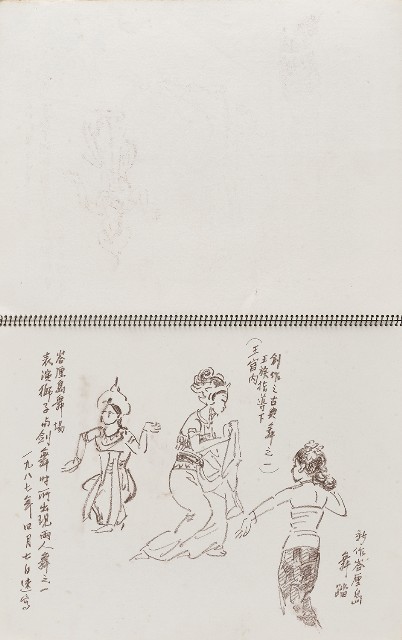 新作峇厘島
舞蹈
創作之古典舞之一
王族指導下
(王宮内)
峇厘島舞場
表演獅子与劍舞時所出現兩人舞之一
一九八七年四月七日速寫